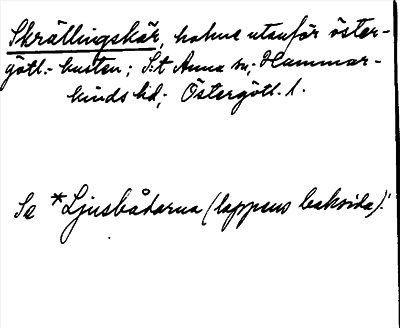 Skrällingskär, holme utanför öster-
götl.-kusten; S:t Anna sn; Hammar-
kinds hd; Östergötl. l.
Se *Ljusbådarna (lappens baksida)!